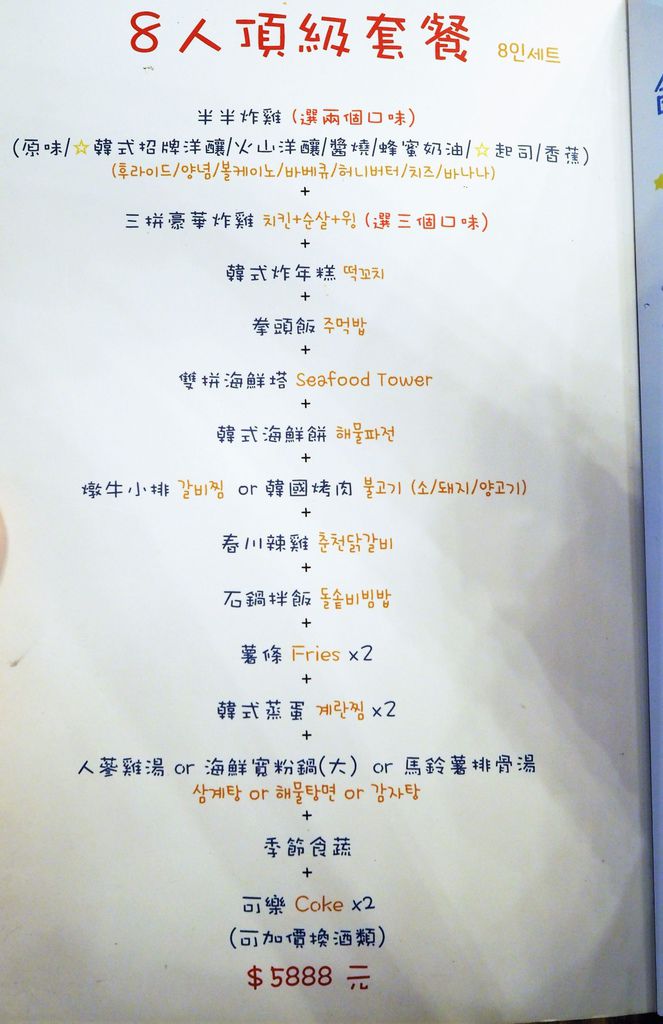 8人頂級套餐 8인세트
半半炸雞 (選兩個口味)
(原味/☆韓式招牌洋釀/火山洋釀/醬燒/蜂蜜奶油/☆起司/香蕉)
(후라이드/양념/볼케이노/바베큐/허니버터/치즈/바나나)
+
三拼豪華炸雞 치킨+순살+윙 (選三個口味)
+
韓式炸年糕 떡꼬치
+
拳頭飯 주먹밥
+
雙拼海鮮塔 Seafood Tower
+
韓式海鮮餅 해물파전
+
燉牛小排 갈비찜 or 韓國烤肉 불고기 (소/돼지/양고기)
+
春川辣雞 춘천닭갈비
+
石鍋拌飯 돌솥비빔밥
+
薯條 Fries x2
+
韓式蒸蛋 계란찜 x2
+
人蔘雞湯 or 海鮮寬粉鍋(大) or 馬鈴薯排骨湯
삼계탕 or 해물탕면 or 감자탕
+
季節食蔬
+
可樂 Coke x2
(可加價換酒類)
$5888 元